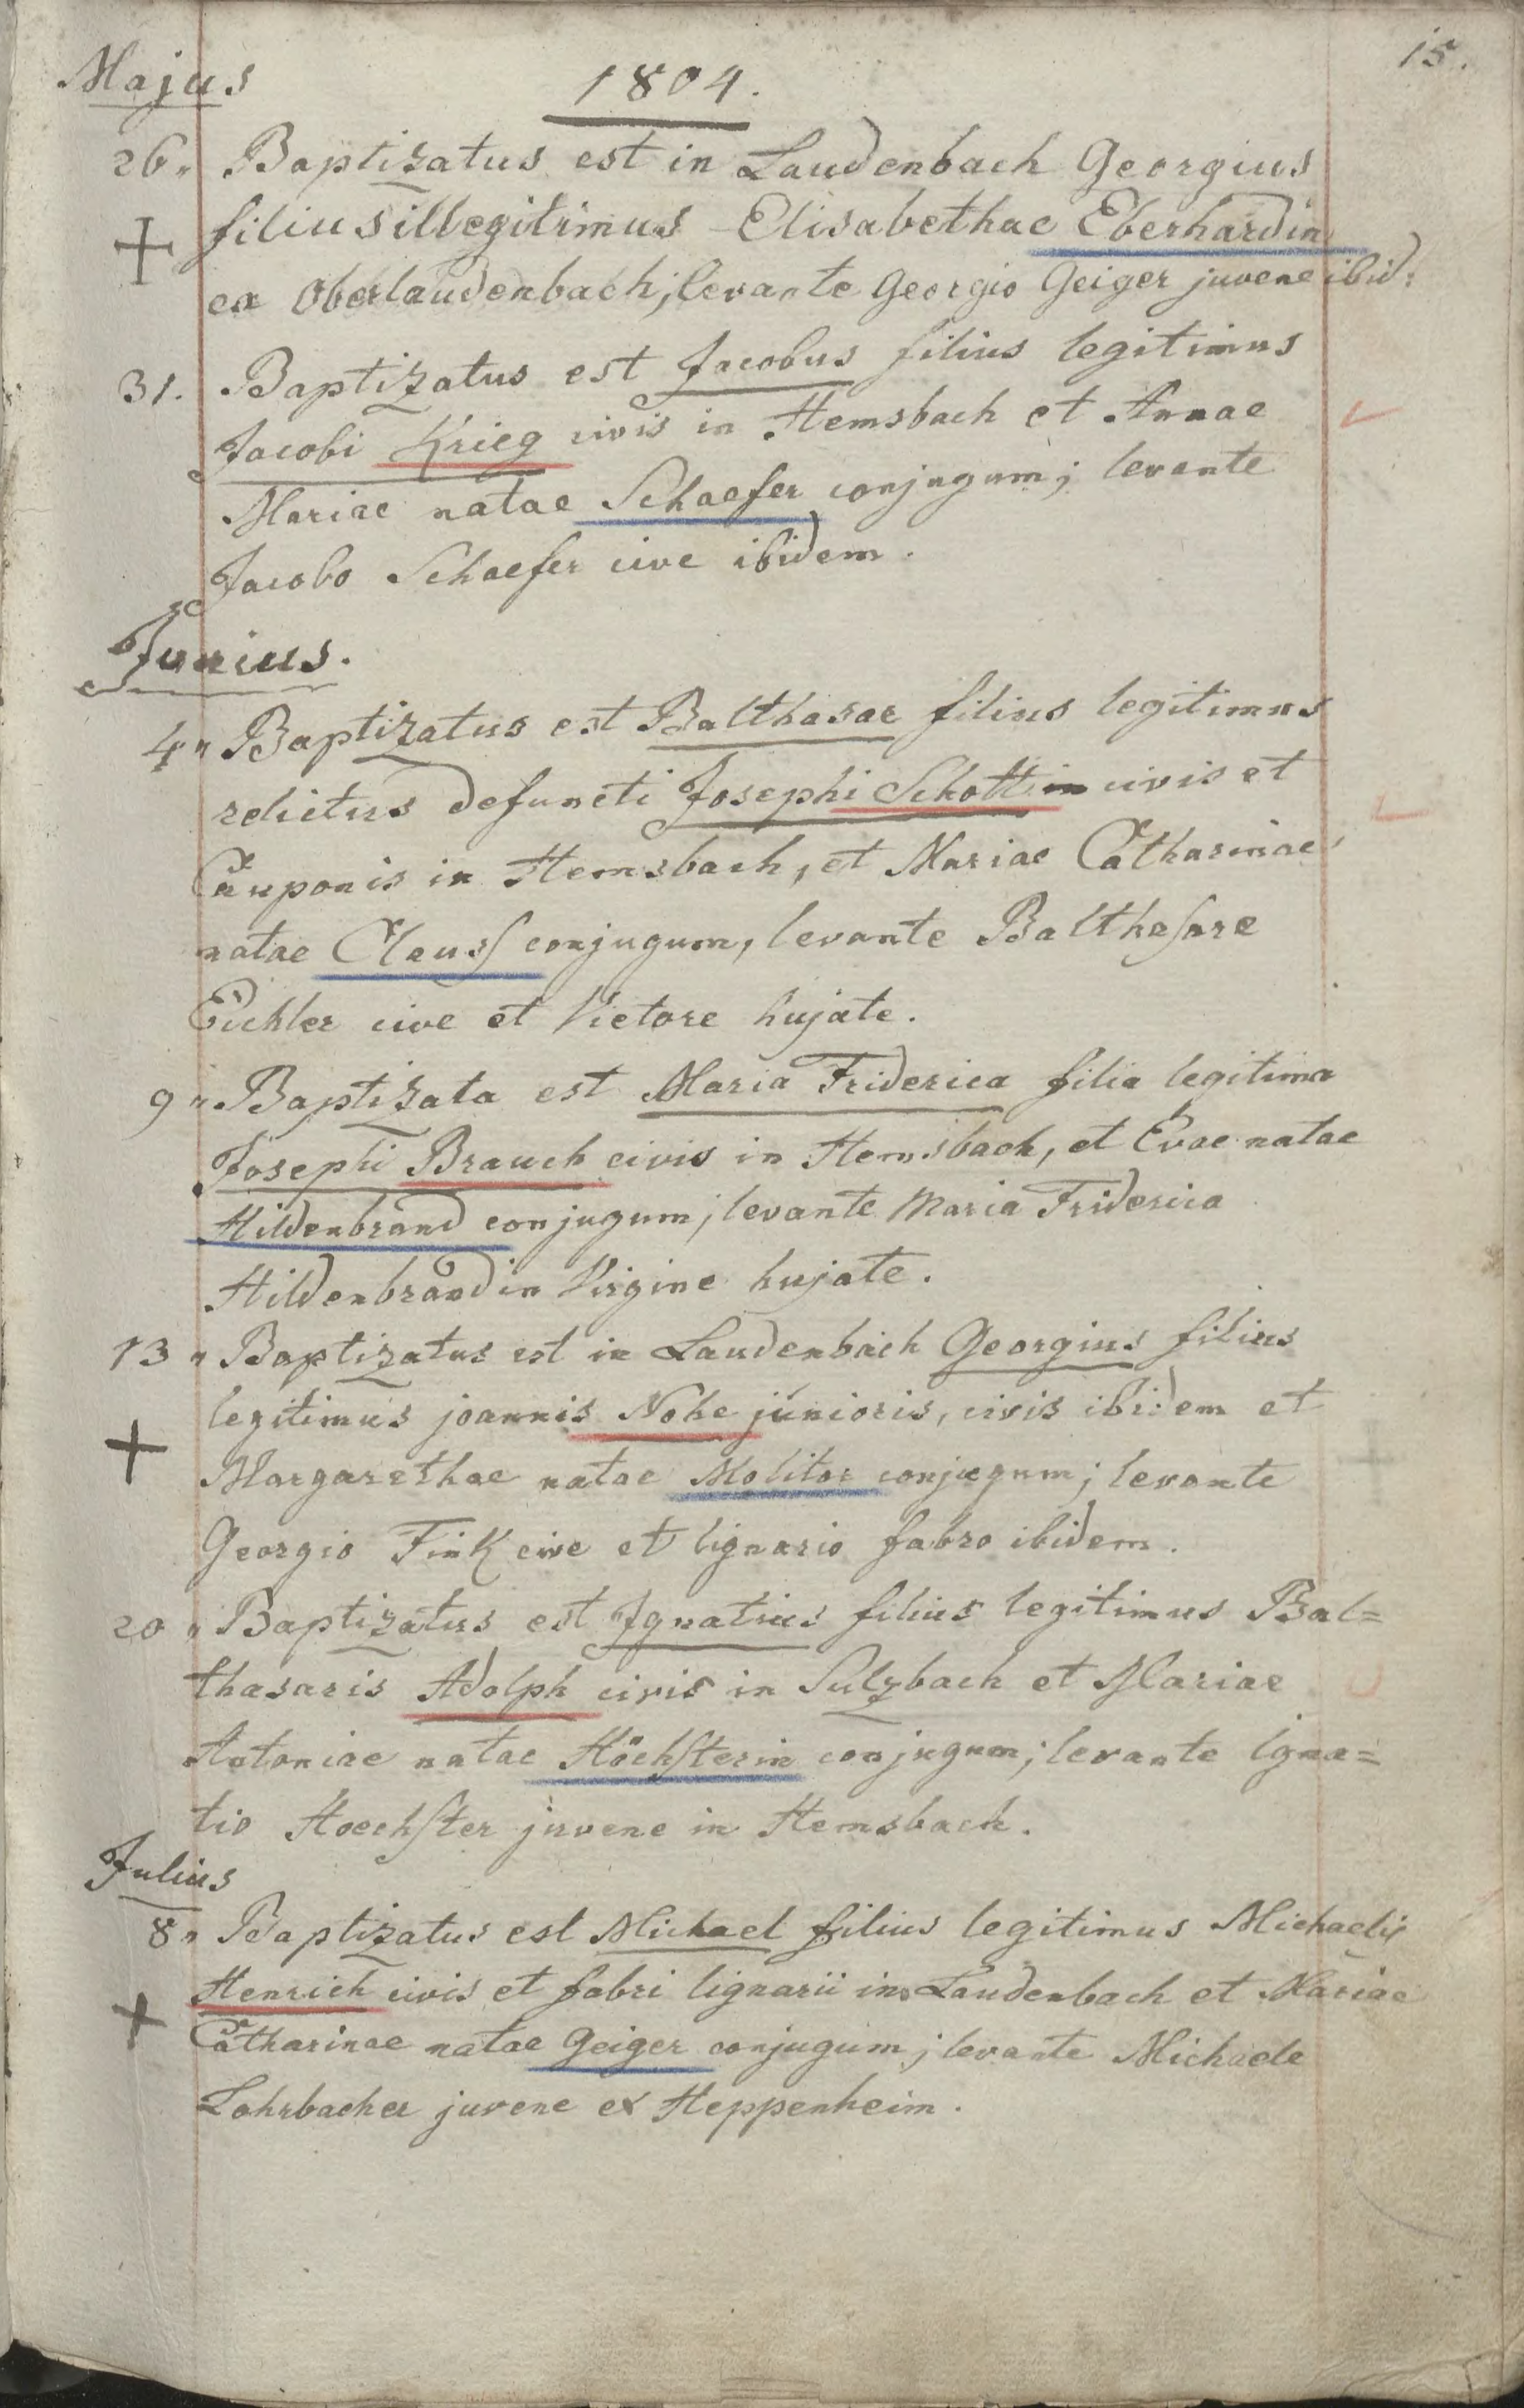 15.
Majus
1804.
26. Baptizatus est in Laudenbach Georgius
filius illegitimus Elisabethae Eberhardin
ex Oberlaudenbach; levante Georgio Geiger juvene ibid:
31. Baptizatus est Jacobus filius legitimus
Jacobi Krieg civis in Hemsbach et Annae
Mariae natae Schaefer conjugum; levante
Jacobo Schaefer cive ibidem.
Junius.
4" Baptizatus est Balthasar filius legitimus
relictus defuncti Josephi Schott civis et
Cauponis in Hemsbach, et Mariae Catharinae
natae Clauss conjugum, levante Balthasare
Eichler cive et Vietore hujate.
9" Baptizata est Maria Friderica filia legitima
Josephi Brauch civis in Hemsbach, et Evae natae
Hildenbrand conjugum; levante Maria Friderica
Hildenbrandin Virgine hujate.
13" Baptizatus est in Laudenbach Georgius filius
legitimus joannis Nohe junioris, civis ibidem et
Margarethae natae Molitor conjugum; levante
Georgio Fink cive et lignario fabro ibidem.
20" Baptizatus est Ignatius filius legitimus Bal=
thasaris Adolph civis in Sulzbach et Mariae
Antoniae natae Höchsterin conjugum; levante Igna=
tio Hoechster juvene in Hemsbach.
Julius
8" Baptizatus est Michael filius legitimus Michaelis
Henrich civis et fabri lignarii in Laudenbach et Mariae
Catharinae natae Geiger conjugum; levante Michaele
Lohrbacher juvene ex Heppenheim.